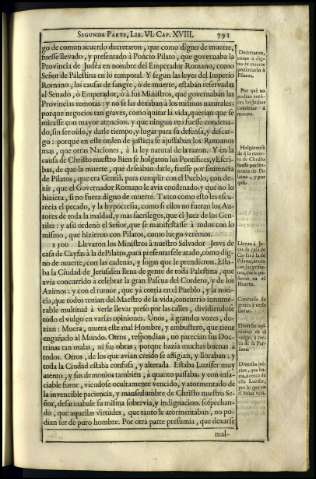 SEGUNDA PARTE, LIB. VI. CAP. XVIII. 791
go de comun acuerdo decretaron, que como digno de muerte,
fuesse llevado, y presentado à Poncio Pilato, que governaba la
Provincia de Judèa en nombre del Emperador Romano, como
Señor de Palestina en lo temporal. Y segun las leyes del Imperio
Romano, las causas de sangre, ò de muerte, estaban reservadas
al Senado, ò Emperador, ò à sus Ministros, que governaban las
Provincias remotas; y no se las dexaban à los mismos naturales:
porque negocios tan graves, como quitar la vida, querian que se
mirassen con mayor atencion, y que ningun reo fuesse condena-
do, sin ser oìdo, y darle tiempo, y lugar para su defensa, y descar-
go: porque en este orden de justicia se ajustaban los Romanos
mas, que otras Naciones, à la ley natural de la razon. Y en la
causa de Christo nuestro Bien se holgaron los Pontifices, y Escri-
bas, de que la muerte, que deseaban darle, fuesse por sentencia
de Pilatos, que era Gentil, para cumplir con el Pueblo, con de-
zir, que el Governador Romano le avia condenado, y que no lo
hiziera, si no fuera digno de muerte. Tanto como esto les obs-
curecia el pecado, y la hypocresia, como si ellos no fueran los Au-
tores de toda la maldad, y mas sacrilegos, que el Juez de los Gen-
tiles: y assi ordenò el Señor, que se manifestasse à todos con lo
mismo, que hizieron con Pilatos, como luego verèmos.
1300 Llevaron los Ministros à nuestro Salvador Jesvs de
casa de Cayfàs à la de Pilatos, para presentarsele atado, como dig-
no de muerte, con las cadenas, y sogas que le prendieron. Esta-
ba la Ciudad de Jerusalèn llena de gente de toda Palestina, que
avia concurrido à celebrar la gran Pascua del Cordero, y de los
Azimos: y con el rumor, que yà corria en el Pueblo, y la noti-
cia, que todos tenian del Maestro de la vida, concurriò innume-
rable multitud à verle llevar preso por las calles, dividiendose
todo el vulgo en varias opiniones. Unos, à grandes voces, de-
zian: Muera, muera este mal Hombre, y embustero, que tiene
engañado al Mundo. Otros, respondian, no parecian sus Doc-
trinas tan malas, ni sus obras, porque hazia muchas buenas à
todos. Otros, de los que avian creìdo se afligian, y lloraban; y
toda la Ciudad estaba confusa, y alterada. Estaba Luzifer muy
atento, y sus demonios tambien, à quanto passaba: y con insa-
ciable furor, viendose ocultamente vencido, y atormentado de
la invencible paciencia, y mansedumbre de Christo nuestro Se-
ñor, desatinabale su misma sobervia, è indignacion, sospechan-
do, que aquellas virtudes, que tanto le atormentaban, no po-
dian ser de puro hombre. Por otra parte presumia, que dexarse
mal-